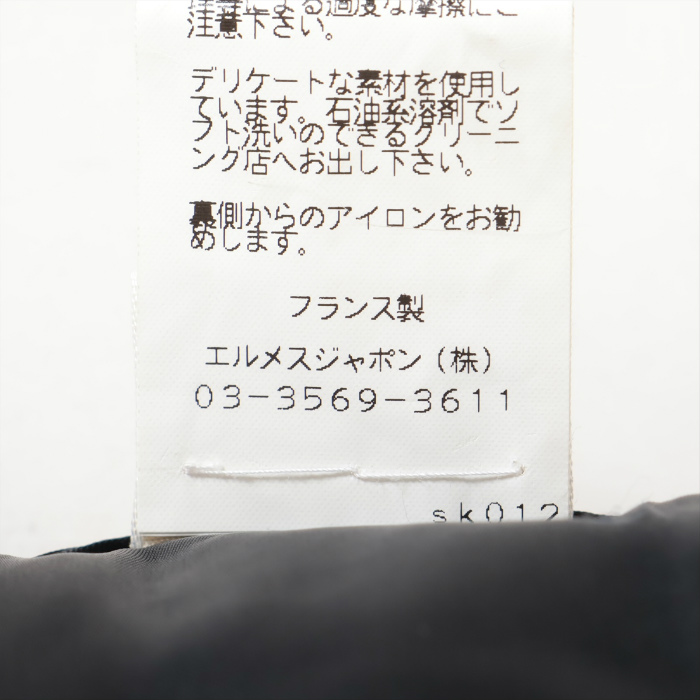 による過度な摩擦にご
注意下さい。
デリケートな素材を使用し
ています。石油系溶剤でソ
フト洗いのできるクリーニ
ング店へお出し下さい。
裏側からのアイロンをお勧
めします。
フランス製
エルメスジャポン(株)
03-3569-3611
sk012